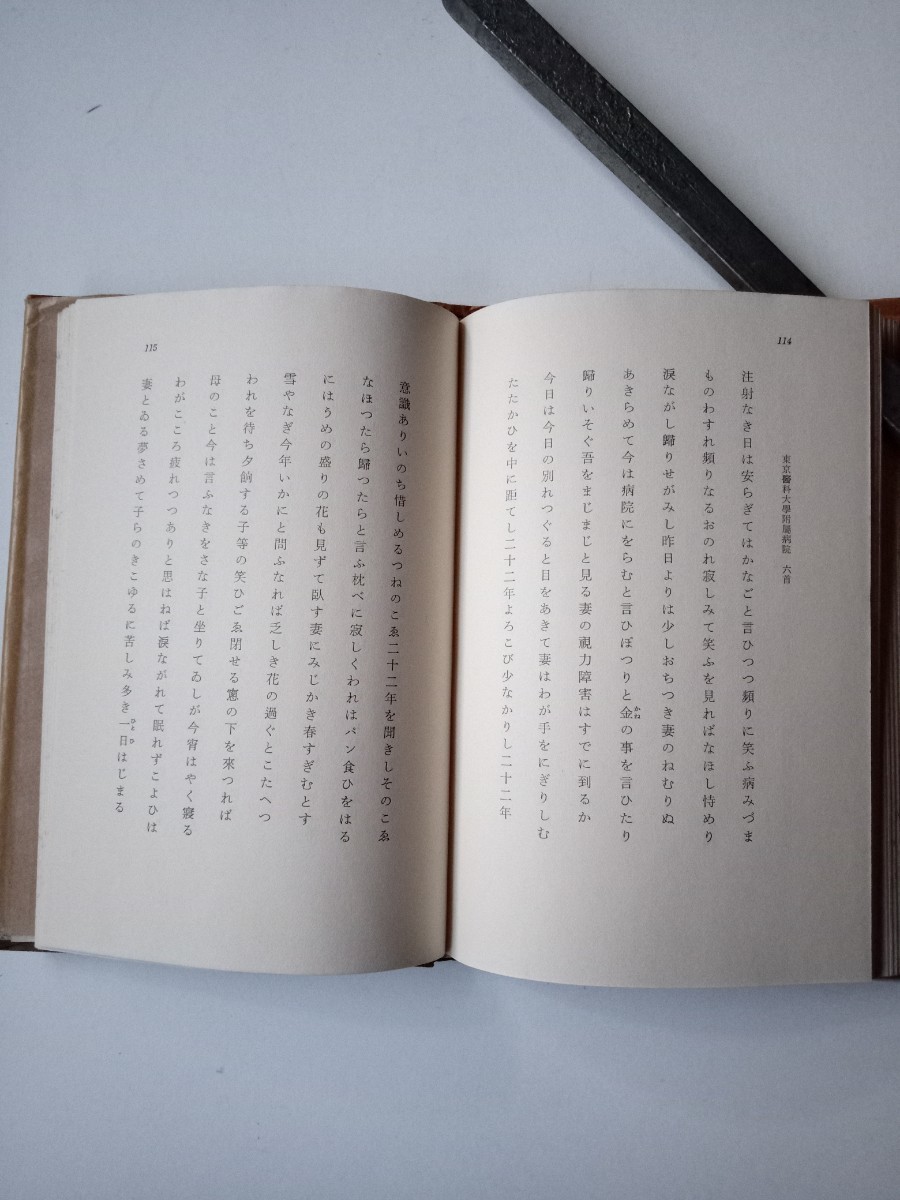 114
東京醫科大學附屬病院 六首
注射なき日は安らぎてはかなごと言ひつつ頻りに笑ふ病みづま
ものわすれ頻りなるおのれ寂しみて笑ふを見ればなほし恃めり
淚ながし歸りせがみし昨日よりは少しおちつき妻のねむりぬ
あきらめて今は病院にをらむと言ひぽつりと金の事を言ひたり
かね
歸りいそぐ吾をまじまじと見る妻の視力障害はすでに到るか
今日は今日の別れつぐると目をあきて妻はわが手をにぎりしむ
たたかひを中に距てし二十二年よろこび少なかりし二十二年
115
意識ありいのち惜しめるつねのこゑ二十二年を聞きしそのこゑ
なほつたら歸つたらと言ふ枕べに寂しくわれはパン食ひをはる
にはうめの盛りの花も見ずて臥す妻にみじかき春すぎむとす
雪やなぎ今年いかにと問ふなれば乏しき花の過ぐとこたへつ
われを待ち夕餉する子等の笑ひごゑ閉せる窓の下を來つれば
母のこと今は言ふなきをさな子と坐りてゐしが今宵はやく寢る
わがこころ疲れつつありと思はねば淚ながれて眠れずこよひは
妻とゐる夢さめて子らのきこゆるに苦しみ多き一日はじまる
ひとひ